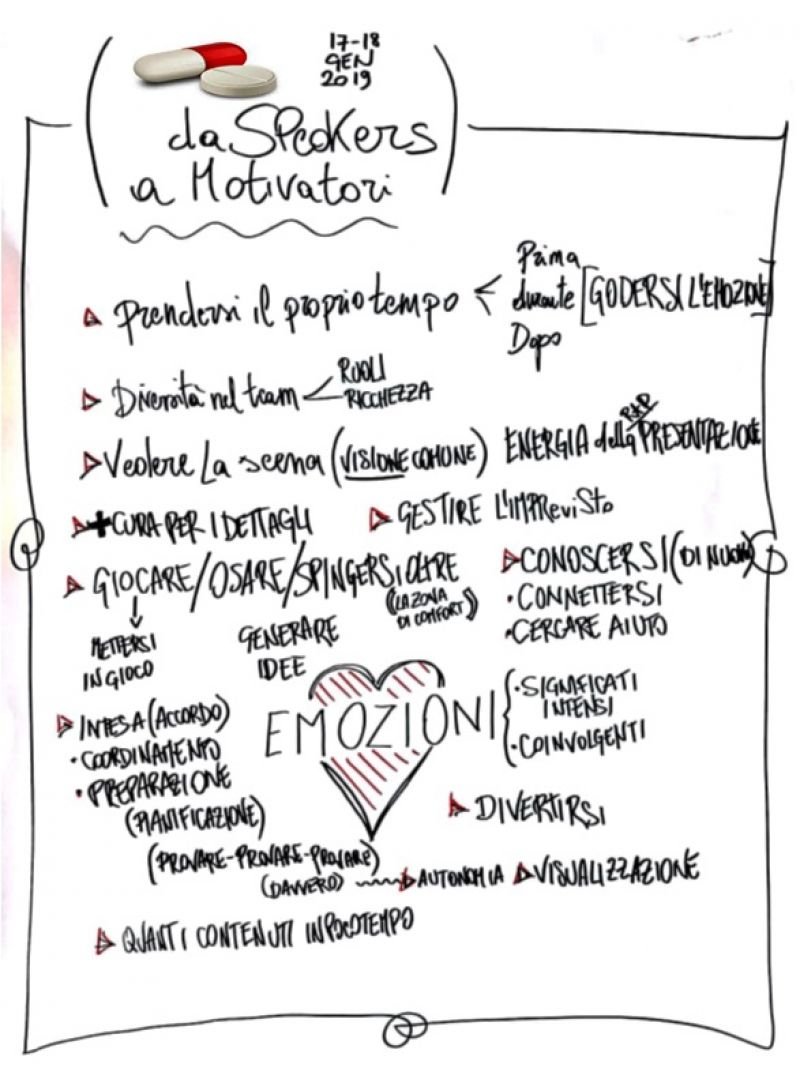 17-18
GEN
2019
da SPeaKers
a Motivatori
Prendersi il proprio tempo <
Prima
durante
Dopo
[GODERSI L'EMOZIONE]
Diversità nel team <
RUOLI
RICCHEZZA
Vedere La scena (VISIONE COMUNE)
ENERGIA della PRESENTAZIONE
+ CURA PER I DETTAGLI
GESTIRE L'IMPREViSto
GIOCARE/OSARE/SPINGERSI OLTRE
(LA ZONA
DI COMFORT)
METTERSI
IN GIOCO
GENERARE
IDEE
CONOSCERSI (DI NUOVO)
· CONNETTERSI
· CERCARE AIUTO
EMOZIONI {
· SIGNIFICATI
INTENSI
· COINVOLGENTI
INTESA (ACCORDO)
· COORDINAMENTO
· PREPARAZIONE
(PIANIFICAZIONE)
(PROVARE-PROVARE-PROVARE)
(DAVVERO)
AUTONOMIA
DIVERTIRSI
VISUALIZZAZIONE
QUANTI CONTENUTI IN POCO TEMPO